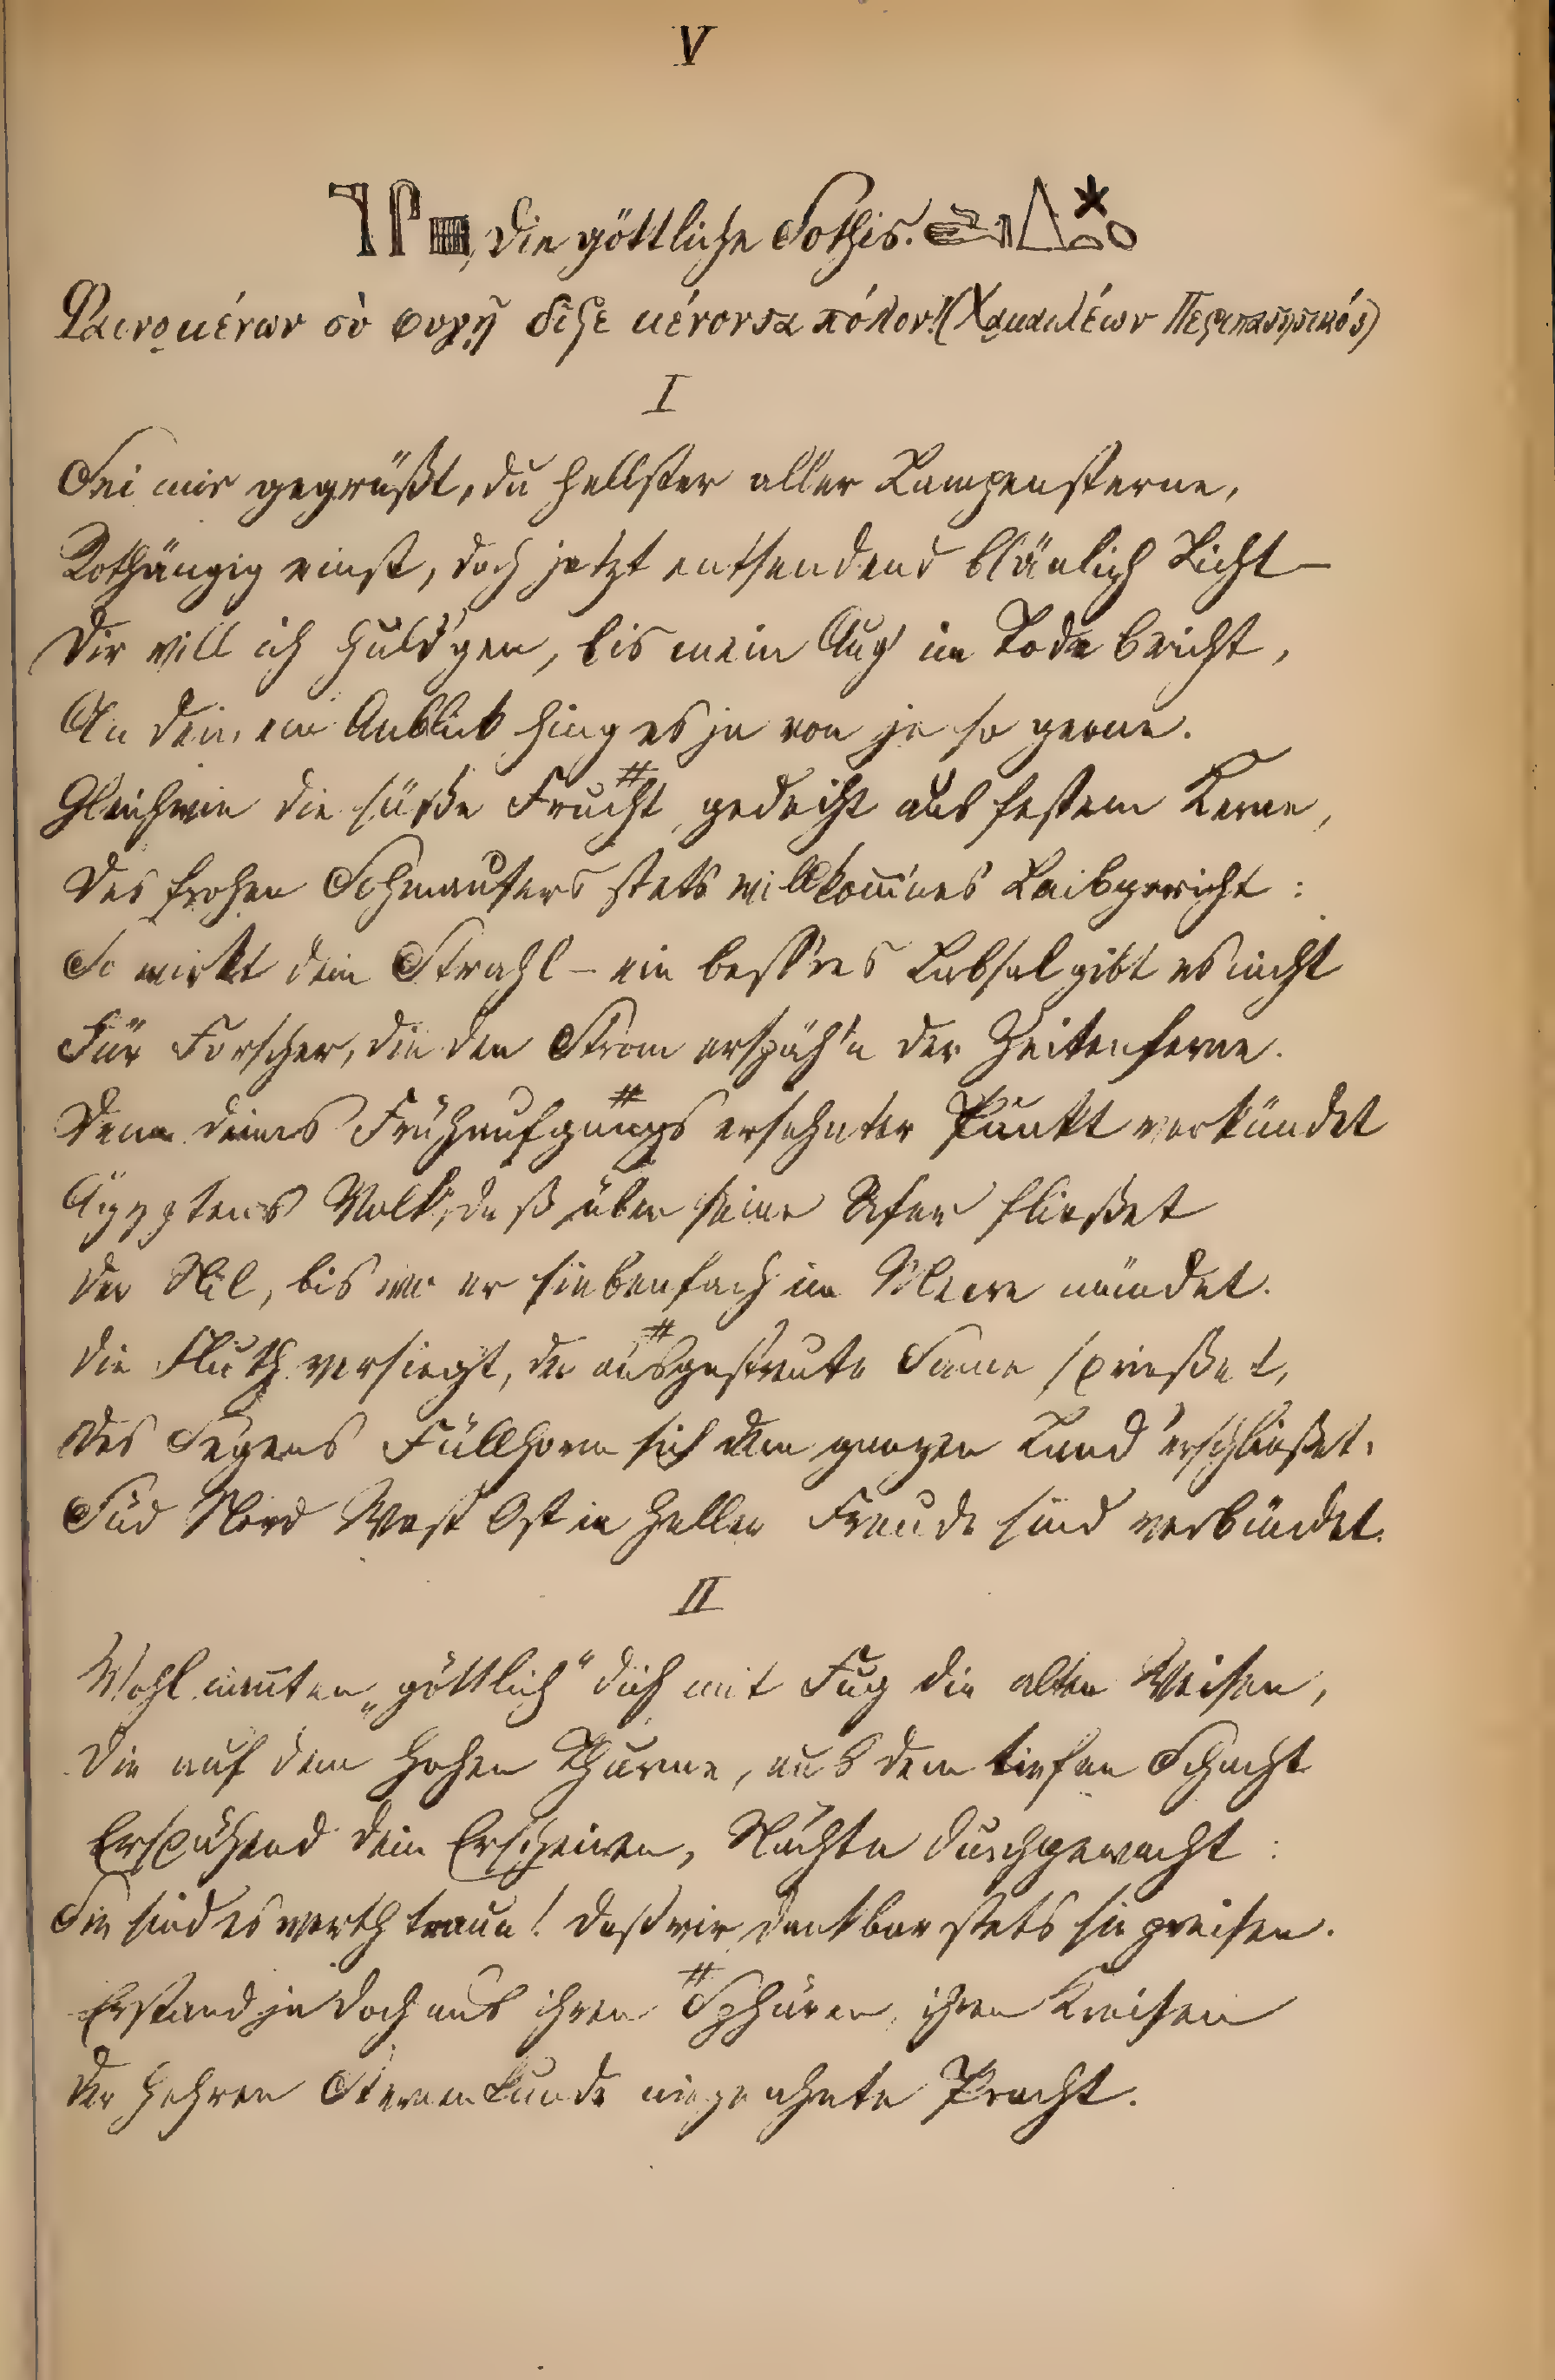 V
die göttliche Sothis.
Φαινομένων σὺ φυγῇ δίζε μένοντα πόλον! (Χαμαιλέων Περιπατητικός)
I
Sei mir gegrüßt, du hellster aller Lampensterne,
Rothäugig einst, doch jetzt entsendend bläulich Licht –
Dir will ich huld'gen, bis mein Aug' im Tode bricht,
An deinem Anblick hing es ja von je so gerne.
Gleichwie die süße Frucht, gedeiht aus festem Kerne,
Des frohen Schmausers stets willkomm'nes Leibgericht:
So wirkt dein Strahl – ein bess'res Labsal gibt es nicht
Für Forscher, die den Strom erspäh'n der Zeitenferne.
Denn deines Frühaufgangs ersehnter Punkt verkündet
Ägyptens Volk, daß über seine Ufer fließet
Der Nil, bis wo er siebenfach im Meere mündet.
Die Fluth versiegt, der ausgestreute Same sprießet,
Des Segens Füllhorn sich dem ganzen Land erschließet.
Süd Nord West Ost in heller Freude sind verbündet.
II
Wohl nannten „göttlich“ dich mit Fug die alten Weisen,
Die auf dem hohen Thurme, aus dem tiefen Schacht
Erspähend dein Erscheinen, Nächte durchgewacht:
Sie sind es werth traun! daß wir dankbar stets sie preisen.
Erstand ja doch aus ihren Sphären, ihren Kreisen
Der hehren Sternenkunde niegeahnte Pracht.